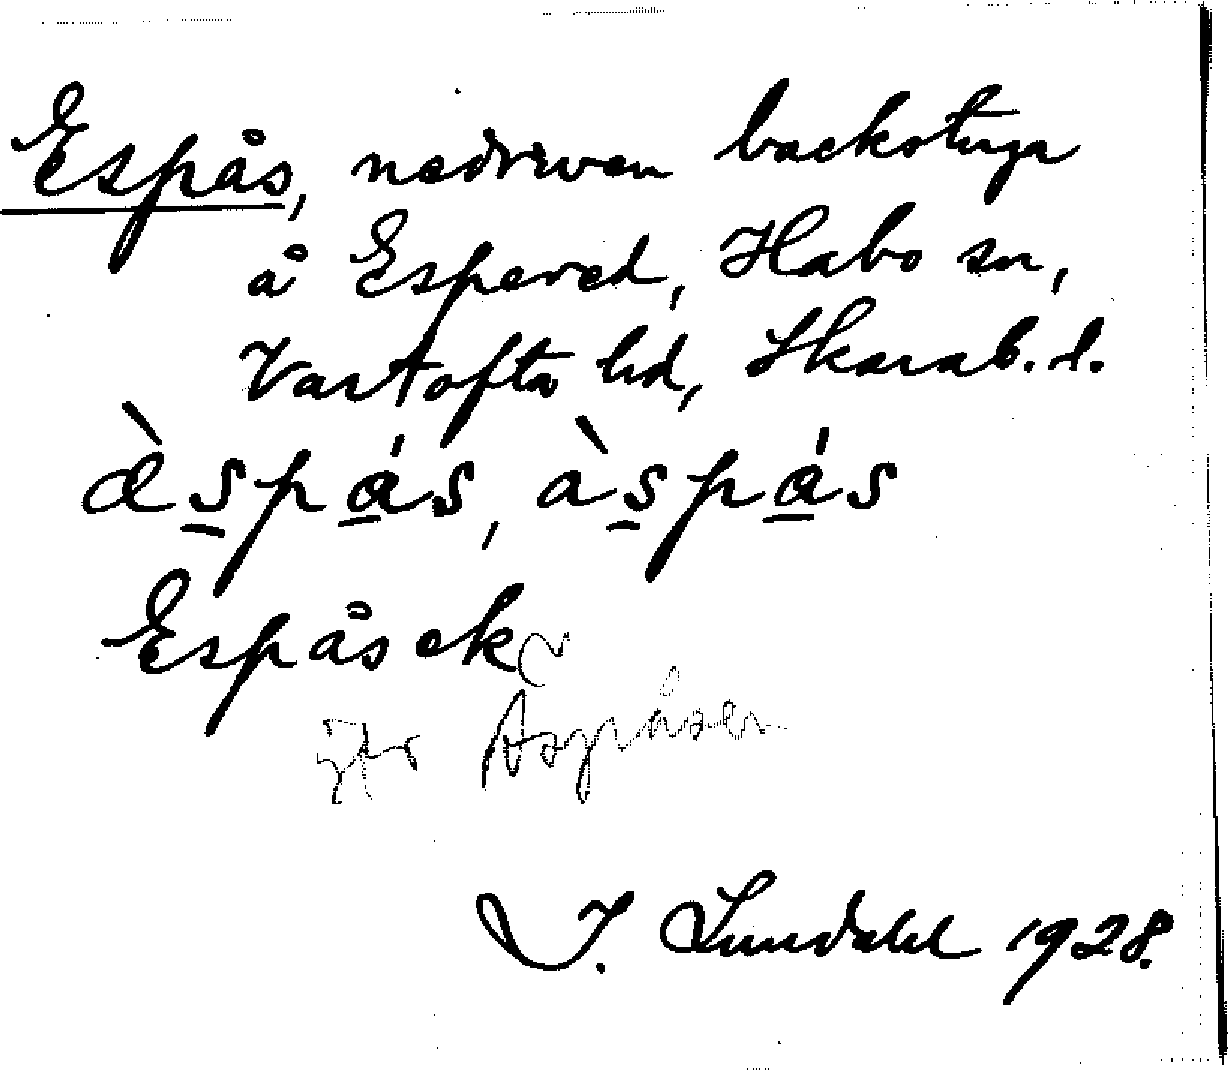 Espås, nedriven backstuga
å Espered, Habo sn,
Vartofta hd, Skarab. l.
æ̀spás, àspás
Espås ek
Jfr Aspåsen
I. Lundahl 1928.